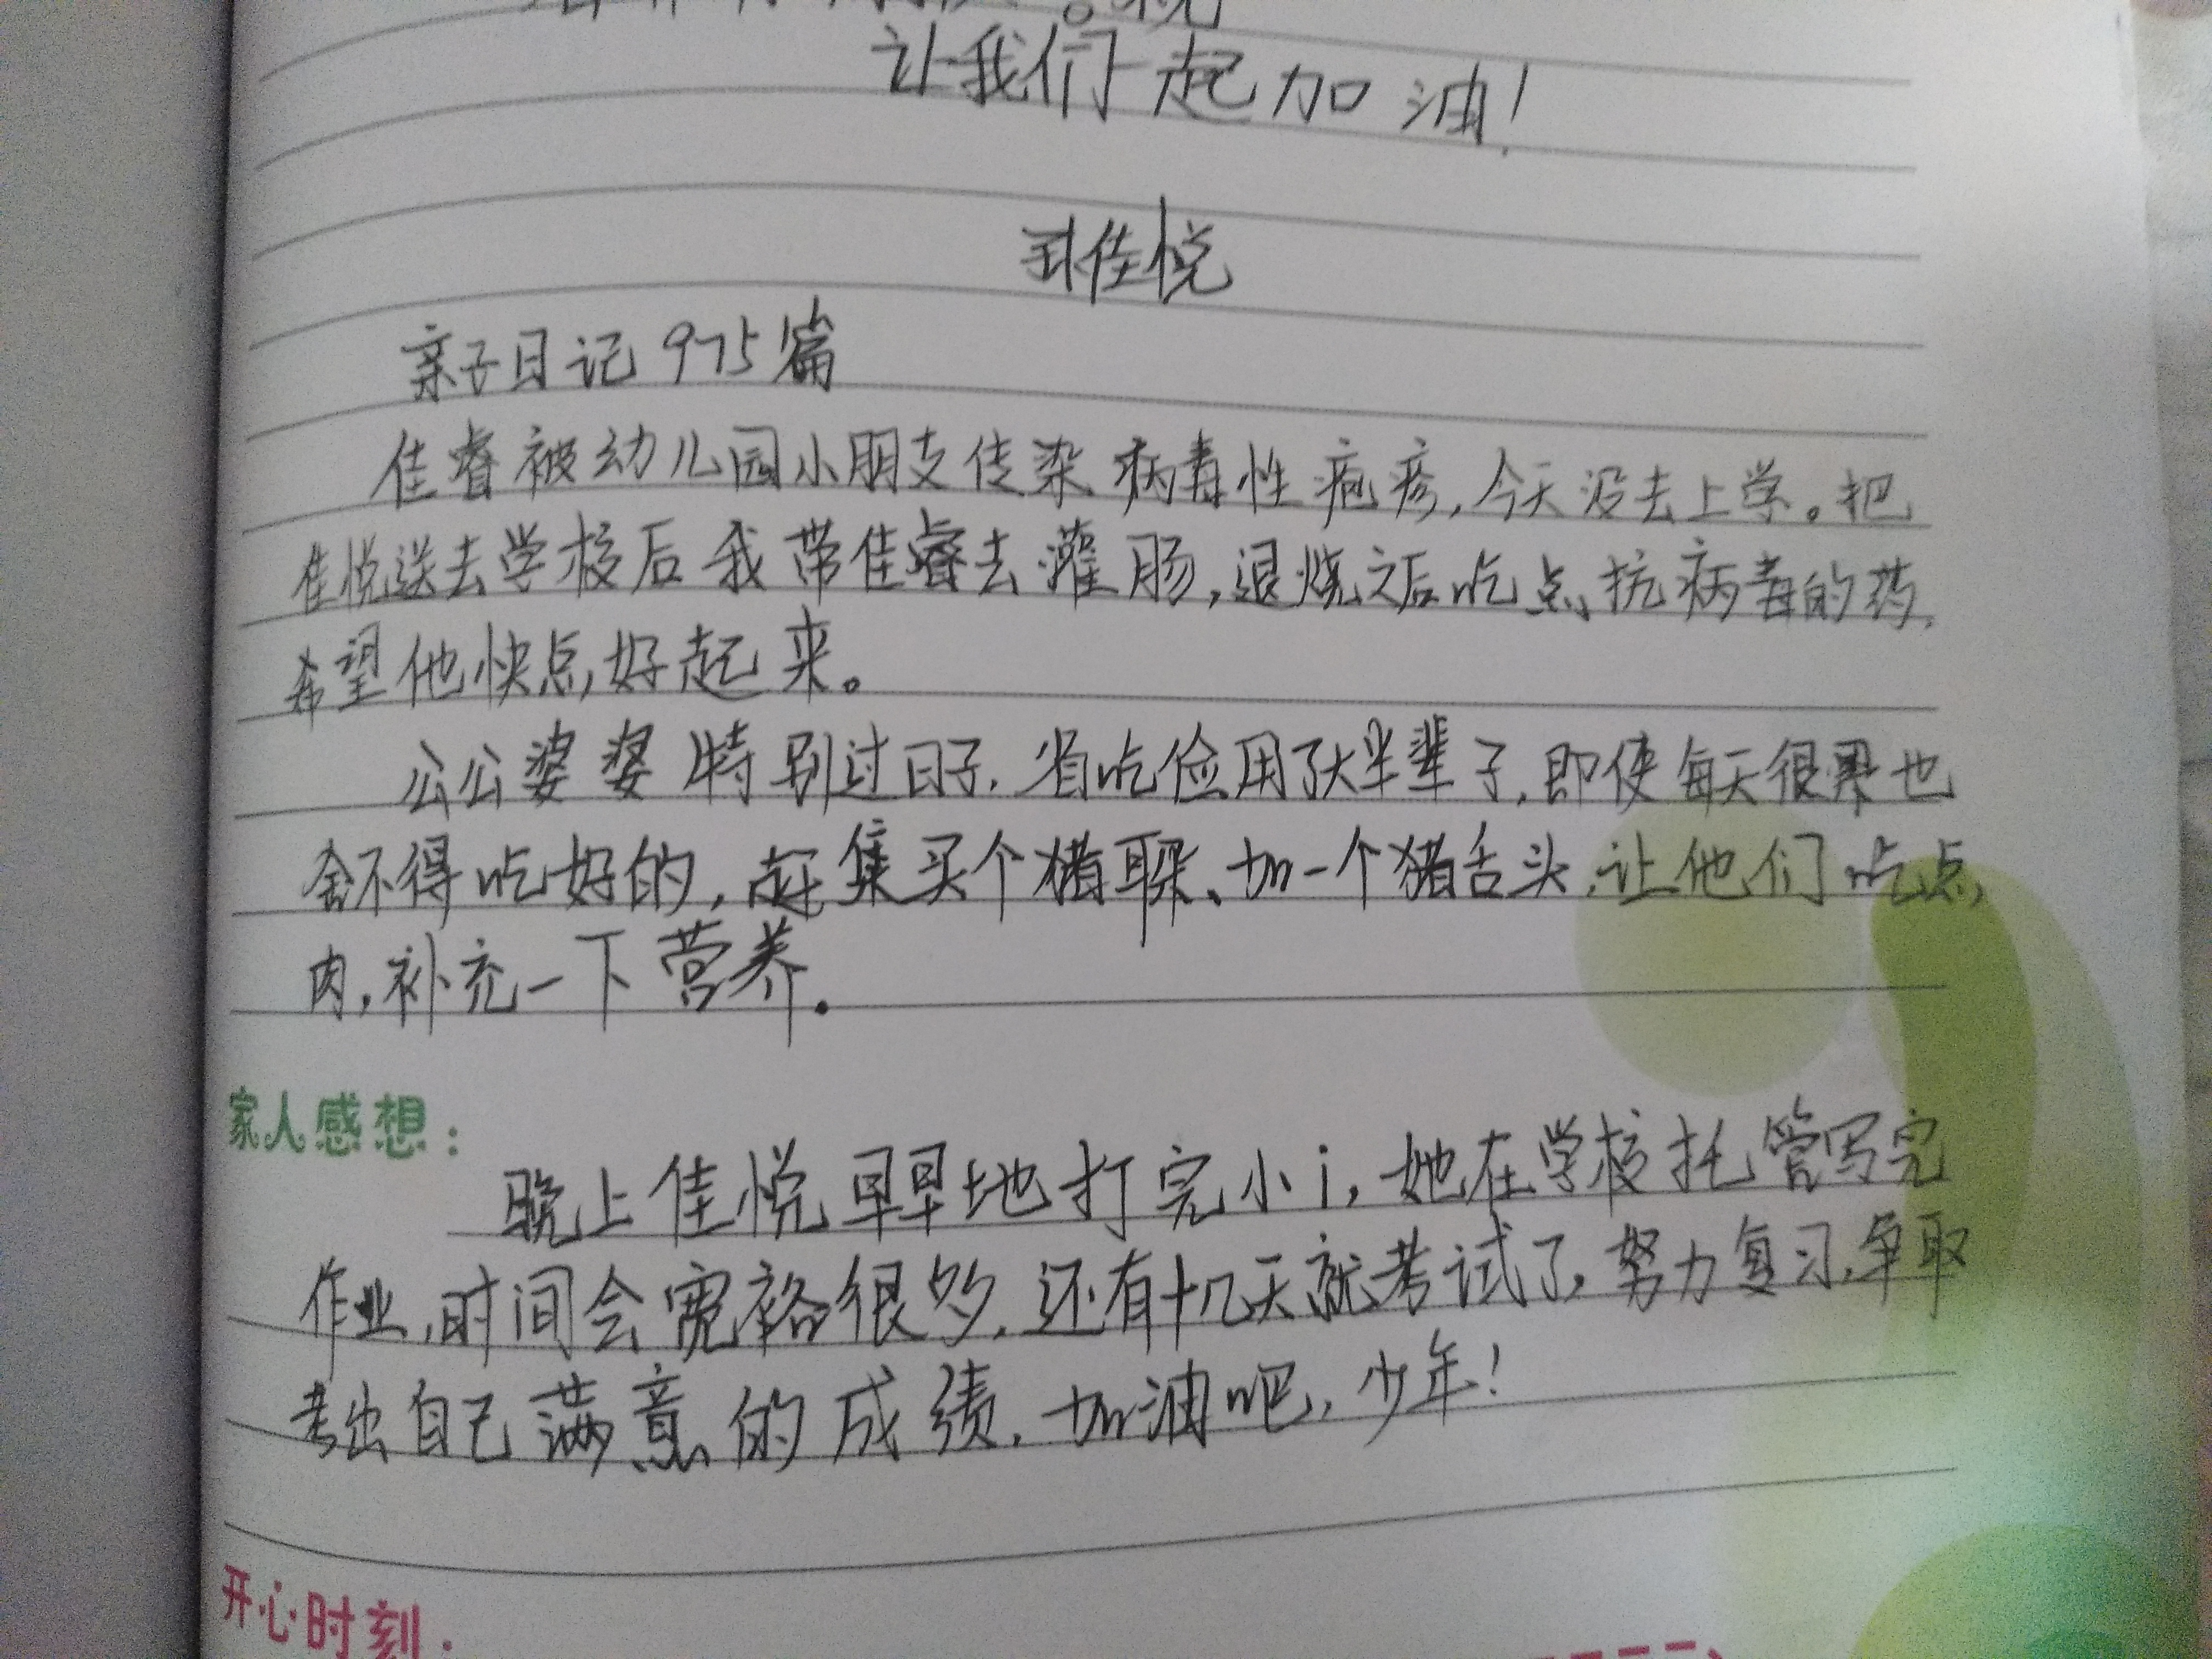 让我们一起加油！
佳悦
亲子日记975篇
佳睿被幼儿园小朋友传染病毒性疱疹,今天没去上学。把
佳悦送去学校后我带佳睿去灌肠,退烧之后吃点抗病毒的药,
希望他快点好起来。
公公婆婆特别过日子,省吃俭用了大半辈子,即使每天很累也
舍不得吃好的,赶集买个猪耳朵、加一个猪舌头,让他们吃点
肉,补充一下营养.
家人感想：
晚上佳悦早早地打完小i,她在学校托管写完
作业,时间会宽裕很多,还有十几天就考试了,努力复习,争取
考出自己满意的成绩,加油吧,少年！
开心时刻：